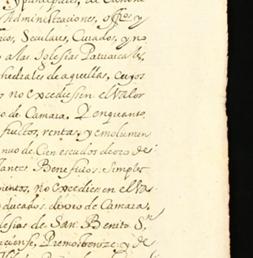 y principales, de Canoni
Administraciones, offos. y
rios, Seculares, Curados, y no
a las Iglesias Patriarcales,
thedrales de aquellas, cuyos
no excediesen el Valor
o de Camara. Y en quanto
frutos, rentas, y emolumen
nuo de Cien escudos de oro de
antes Beneficios Simples
mientos, no Excedies en el Va
ducados de oro de Camara,
lesias de San Benito Sn.
Premostense, y de